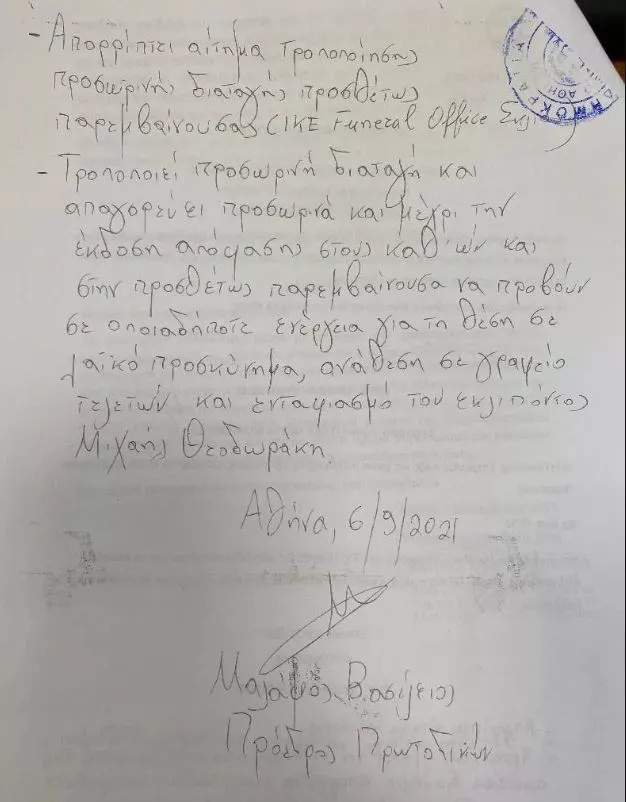 - Απορρίπτει αίτημα τροποποίησης
προσωρινής διαταγής προσθέτως
παρεμβαίνουσας (ΙΚΕ Funeral Office
- Τροποποιεί προσωρινή διαταγή και
απαγορεύει προσωρινά και μέχρι την
έκδοση απόφασης στους καθ'ών και
στην προσθέτως παρεμβαίνουσα να προβούν
σε οποιαδήποτε ενέργεια για τη θέση σε
λαϊκό προσκύνημα, ανάθεση σε γραφείο
τελετών και ενταφιασμό του εκλιπόντος
Μιχαήλ Θεοδωράκη
Αθήνα, 6/9/2021
Βασίλειος
Πρόεδρος Πρωτοδικών